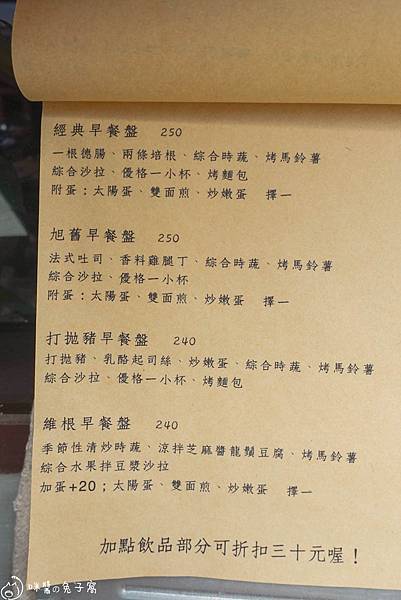 經典早餐盤 250
一根德腸、兩條培根、綜合時蔬、烤馬鈴薯
綜合沙拉、優格一小杯、烤麵包
附蛋：太陽蛋、雙面煎、炒嫩蛋 擇一
旭舊早餐盤 250
法式吐司、香料雞腿丁、綜合時蔬、烤馬鈴薯
綜合沙拉、優格一小杯
附蛋：太陽蛋、雙面煎、炒嫩蛋 擇一
打拋豬早餐盤 240
打拋豬、乳酪起司絲、炒嫩蛋、綜合時蔬、烤馬鈴薯
綜合沙拉、優格一小杯、烤麵包
維根早餐盤 240
季節性清炒時蔬、涼拌芝麻醬龍鬚豆腐、烤馬鈴薯
綜合水果拌豆漿沙拉
加蛋+20；太陽蛋、雙面煎、炒嫩蛋 擇一
加點飲品部分可折扣三十元喔！
咪醬の兔子窩